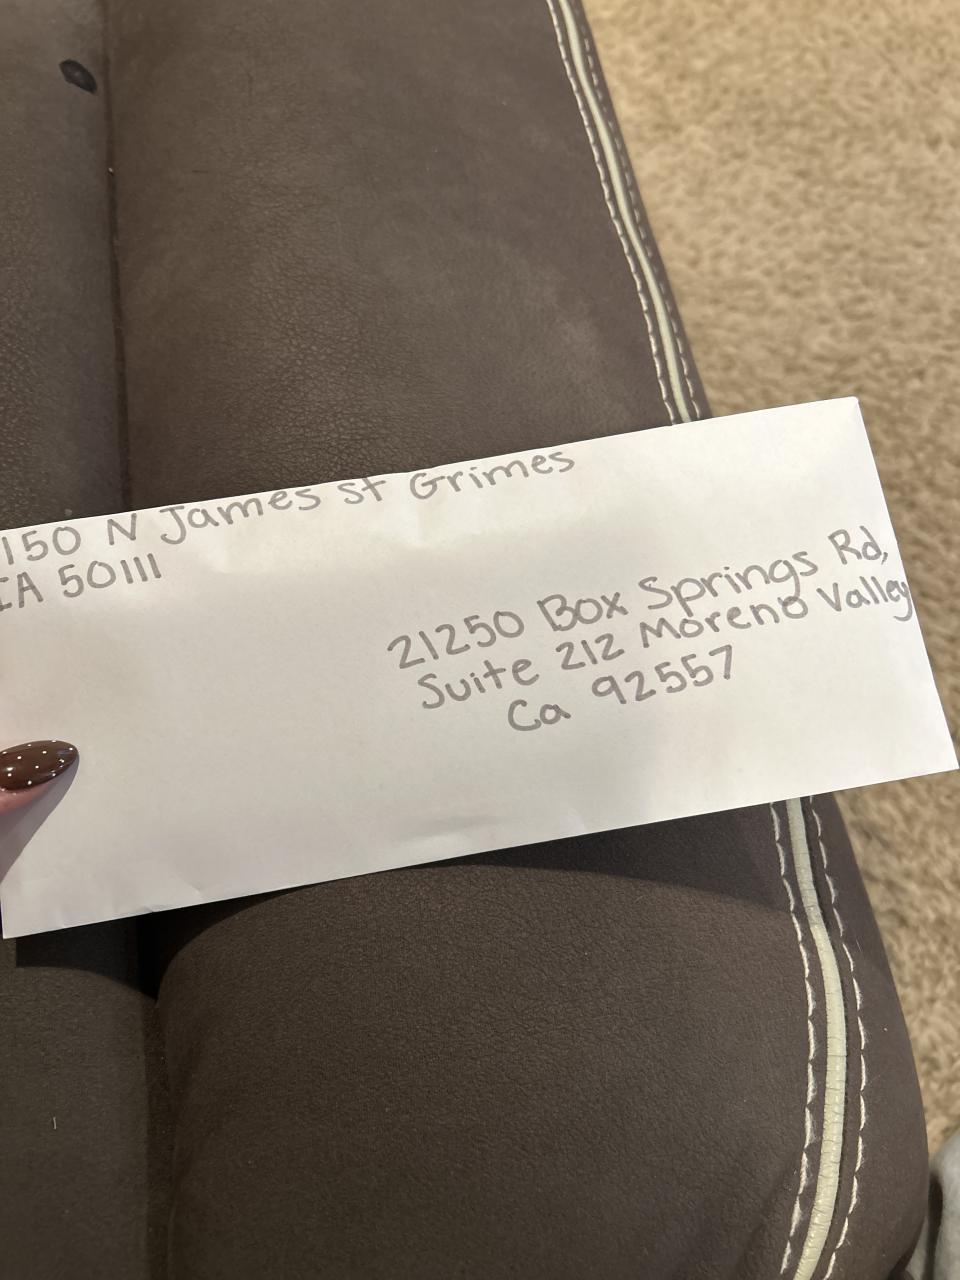 150 N James st Grimes
IA 50111
21250 Box Springs Rd,
Suite 212 Moreno Valley
Ca 92557